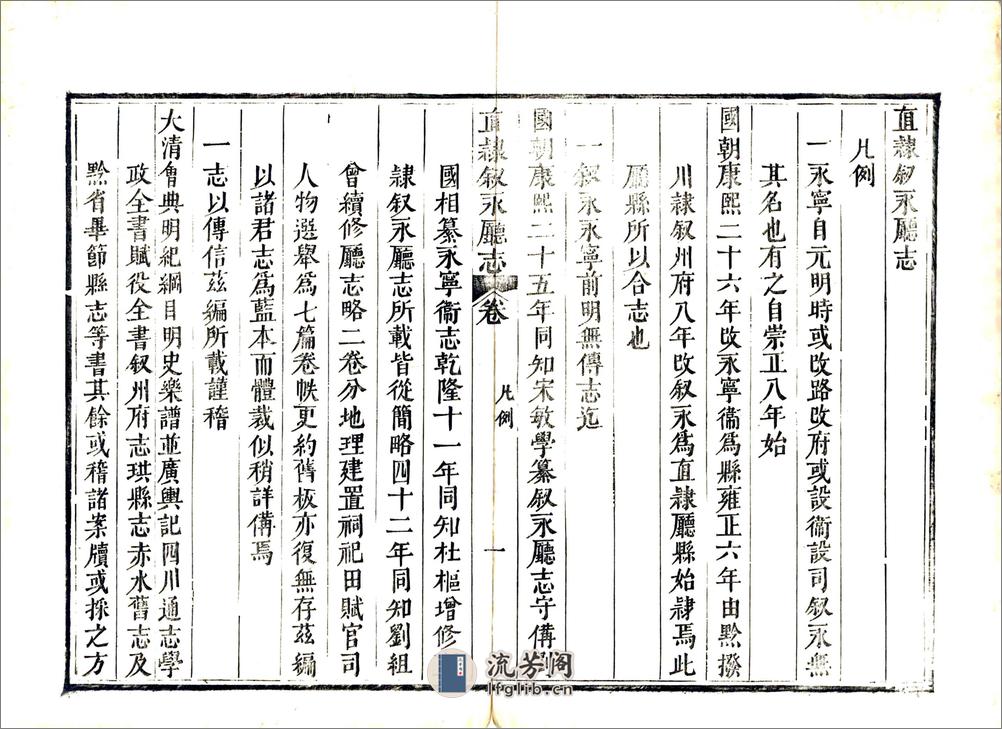 直隸叙永廳志
凡例
一永寧自元明時或改路改府或設衞設司叙永無
其名也有之自崇正八年始
國朝康熙二十六年改永寧衞爲縣雍正六年由黔撥
川隸叙州府八年改叙永爲直隸廳縣始隷焉此
廳縣所以合志也
一叙永永寧前明無傳志迄
國朝康熙二十五年同知宋敏學纂叙永廳志守備
直隸叙永廳志 卷 凡例 一
國相纂永寧衞志乾隆十一年同知杜樞增修
隸叙永廳志所載皆從簡略四十二年同知劉組
曾續修廳志略二卷分地理建置祠祀田賦官司
人物選舉爲七篇卷帙更約舊板亦復無存茲編
以諸君志爲藍本而體裁似稍詳備焉
一志以傳信茲編所載謹稽
大清會典明紀綱目明史樂譜並廣輿記四川通志學
政全書賦役全書叙州府志珙縣志赤水舊志及
黔省畢節縣志等書其餘或稽諸案牘或採之方
流芳阁
lfglib.cn